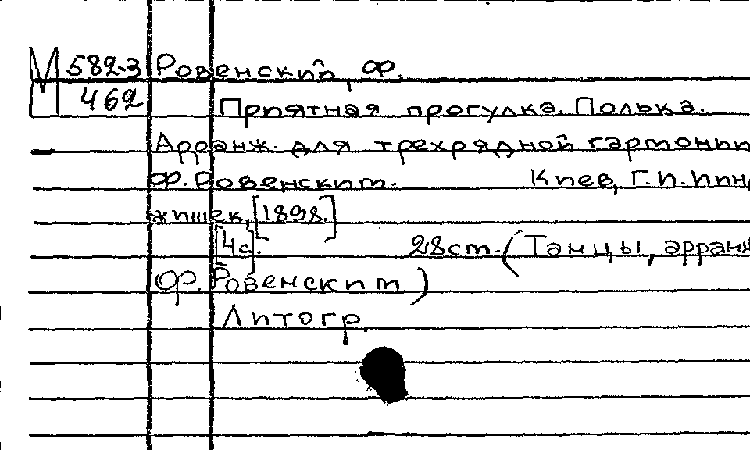 М 582-3 Ровенский, Ф.
462 Приятная прогулка. Полька.
Арранж. для трехрядной гармонии
Ф. Ровенским. Киев, Г.И. Инд
жишек, [1898.]
[4с]. 28см. (Танцы, арранж
Ф. Ровенским)
Литогр.